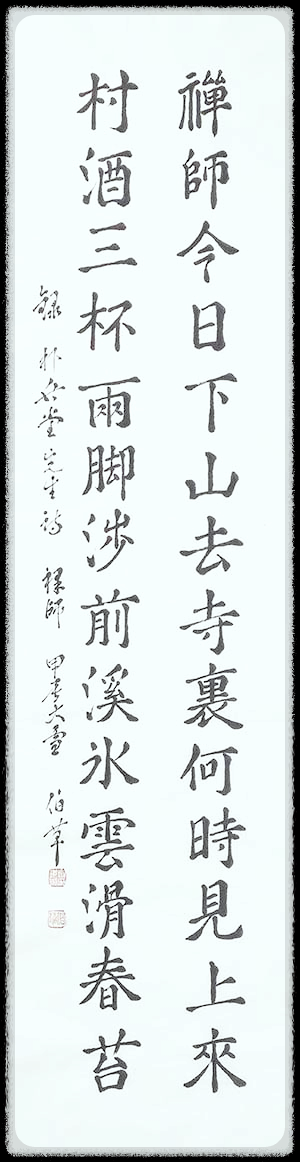 禪師今日下山去寺裏何時見上來
村酒三杯雨脚涉前溪氷雲滑春苔
錄 朴岳堂先生詩 禪師 甲辰大雪 伯草